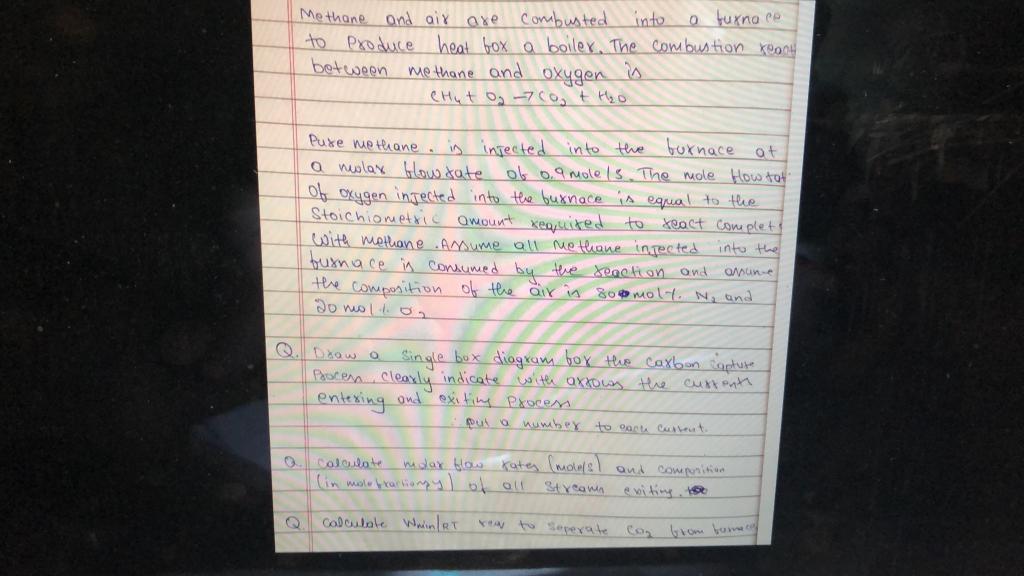 Methane and air are combusted into a furnace
to Produce heat for a boiler. The combustion reac
between methane and oxygen is
CH4 + O2 → CO2 + H2O
Pure methane. is injected into the furnace at
a molar flowrate of 0.9 mole/s. The mole flow rat
of oxygen injected into the furnace is equal to the
Stoichiometric amount required to react complet
with methane. Assume all methane injected into the
furnace is consumed by the reaction and assume
the composition of the air is 80 mol%. N2 and
20 mol%. O2
Q. Draw a Single box diagram for the carbon capture
Process, clearly indicate with arrows the currents
entering and exiting process
: put a number to each current.
Q. calculate molar flow rates (mole/s) and composition
(in mole fraction) of all streams exiting.
Q. calculate Wmin/RT to seperate CO2 from furnace